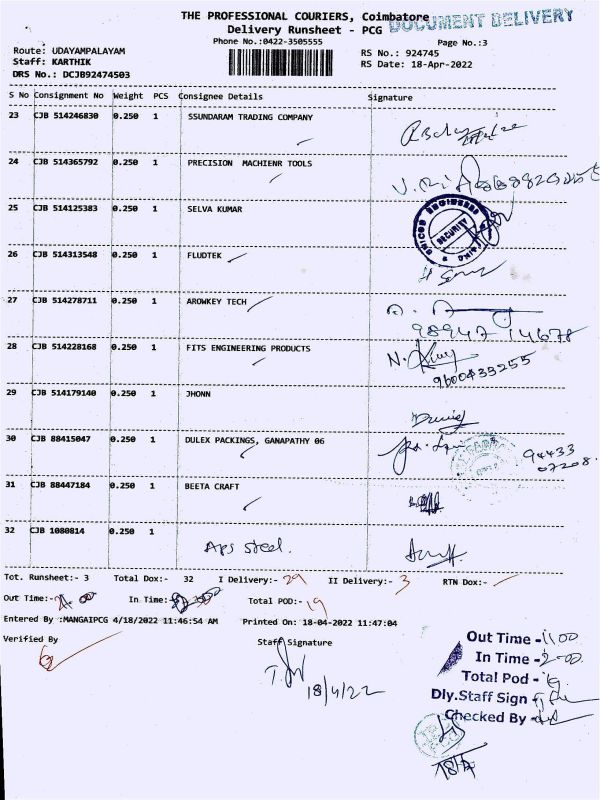 THE PROFESSIONAL COURIERS, Coimbatore
DOCUMENT DELIVERY
Delivery Runsheet - PCG
Phone No.:0422-3505555
Page No.:3
Route: UDAYAMPALAYAM
RS No.: 924745
Staff: KARTHIK
RS Date: 18-Apr-2022
DRS No.: DCJB92474503
S No Consignment No Weight PCS Consignee Details Signature
23 CJB 514246830 0.250 1 SSUNDARAM TRADING COMPANY
24 CJB 514365792 0.250 1 PRECISION MACHIENR TOOLS
25 CJB 514125383 0.250 1 SELVA KUMAR
SECURITY
26 CJB 514313548 0.250 1 FLUDTEK
27 CJB 514278711 0.250 1 AROWKEY TECH
98947 14678
28 CJB 514228168 0.250 1 FITS ENGINEERING PRODUCTS
9600433255
29 CJB 514179140 0.250 1 JHONN
30 CJB 88415047 0.250 1 DULEX PACKINGS, GANAPATHY 06
94433
07208.
31 CJB 88447184 0.250 1 BEETA CRAFT
32 CJB 1080814 0.250 1 Aps steel.
Tot. Runsheet:- 3 Total Dox:- 32 I Delivery:- 29 II Delivery:- 3 RTN Dox:-
Out Time:- In Time: Total POD:- 19
Entered By :MANGAIPCG 4/18/2022 11:46:54 AM Printed On: 18-04-2022 11:47:04
Verified By
Staff Signature
18/4/22
Out Time - 11.00
In Time - 2-00
Total Pod -
Dly.Staff Sign -
Checked By -
18/4